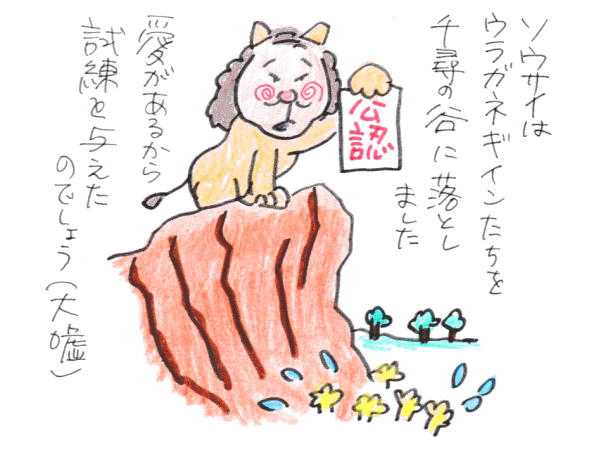 ソウサイは
ウラガネギインたちを
千尋の谷に落とし
ました
公認
愛があるから
試練を与えた
のでしょう(大嘘)